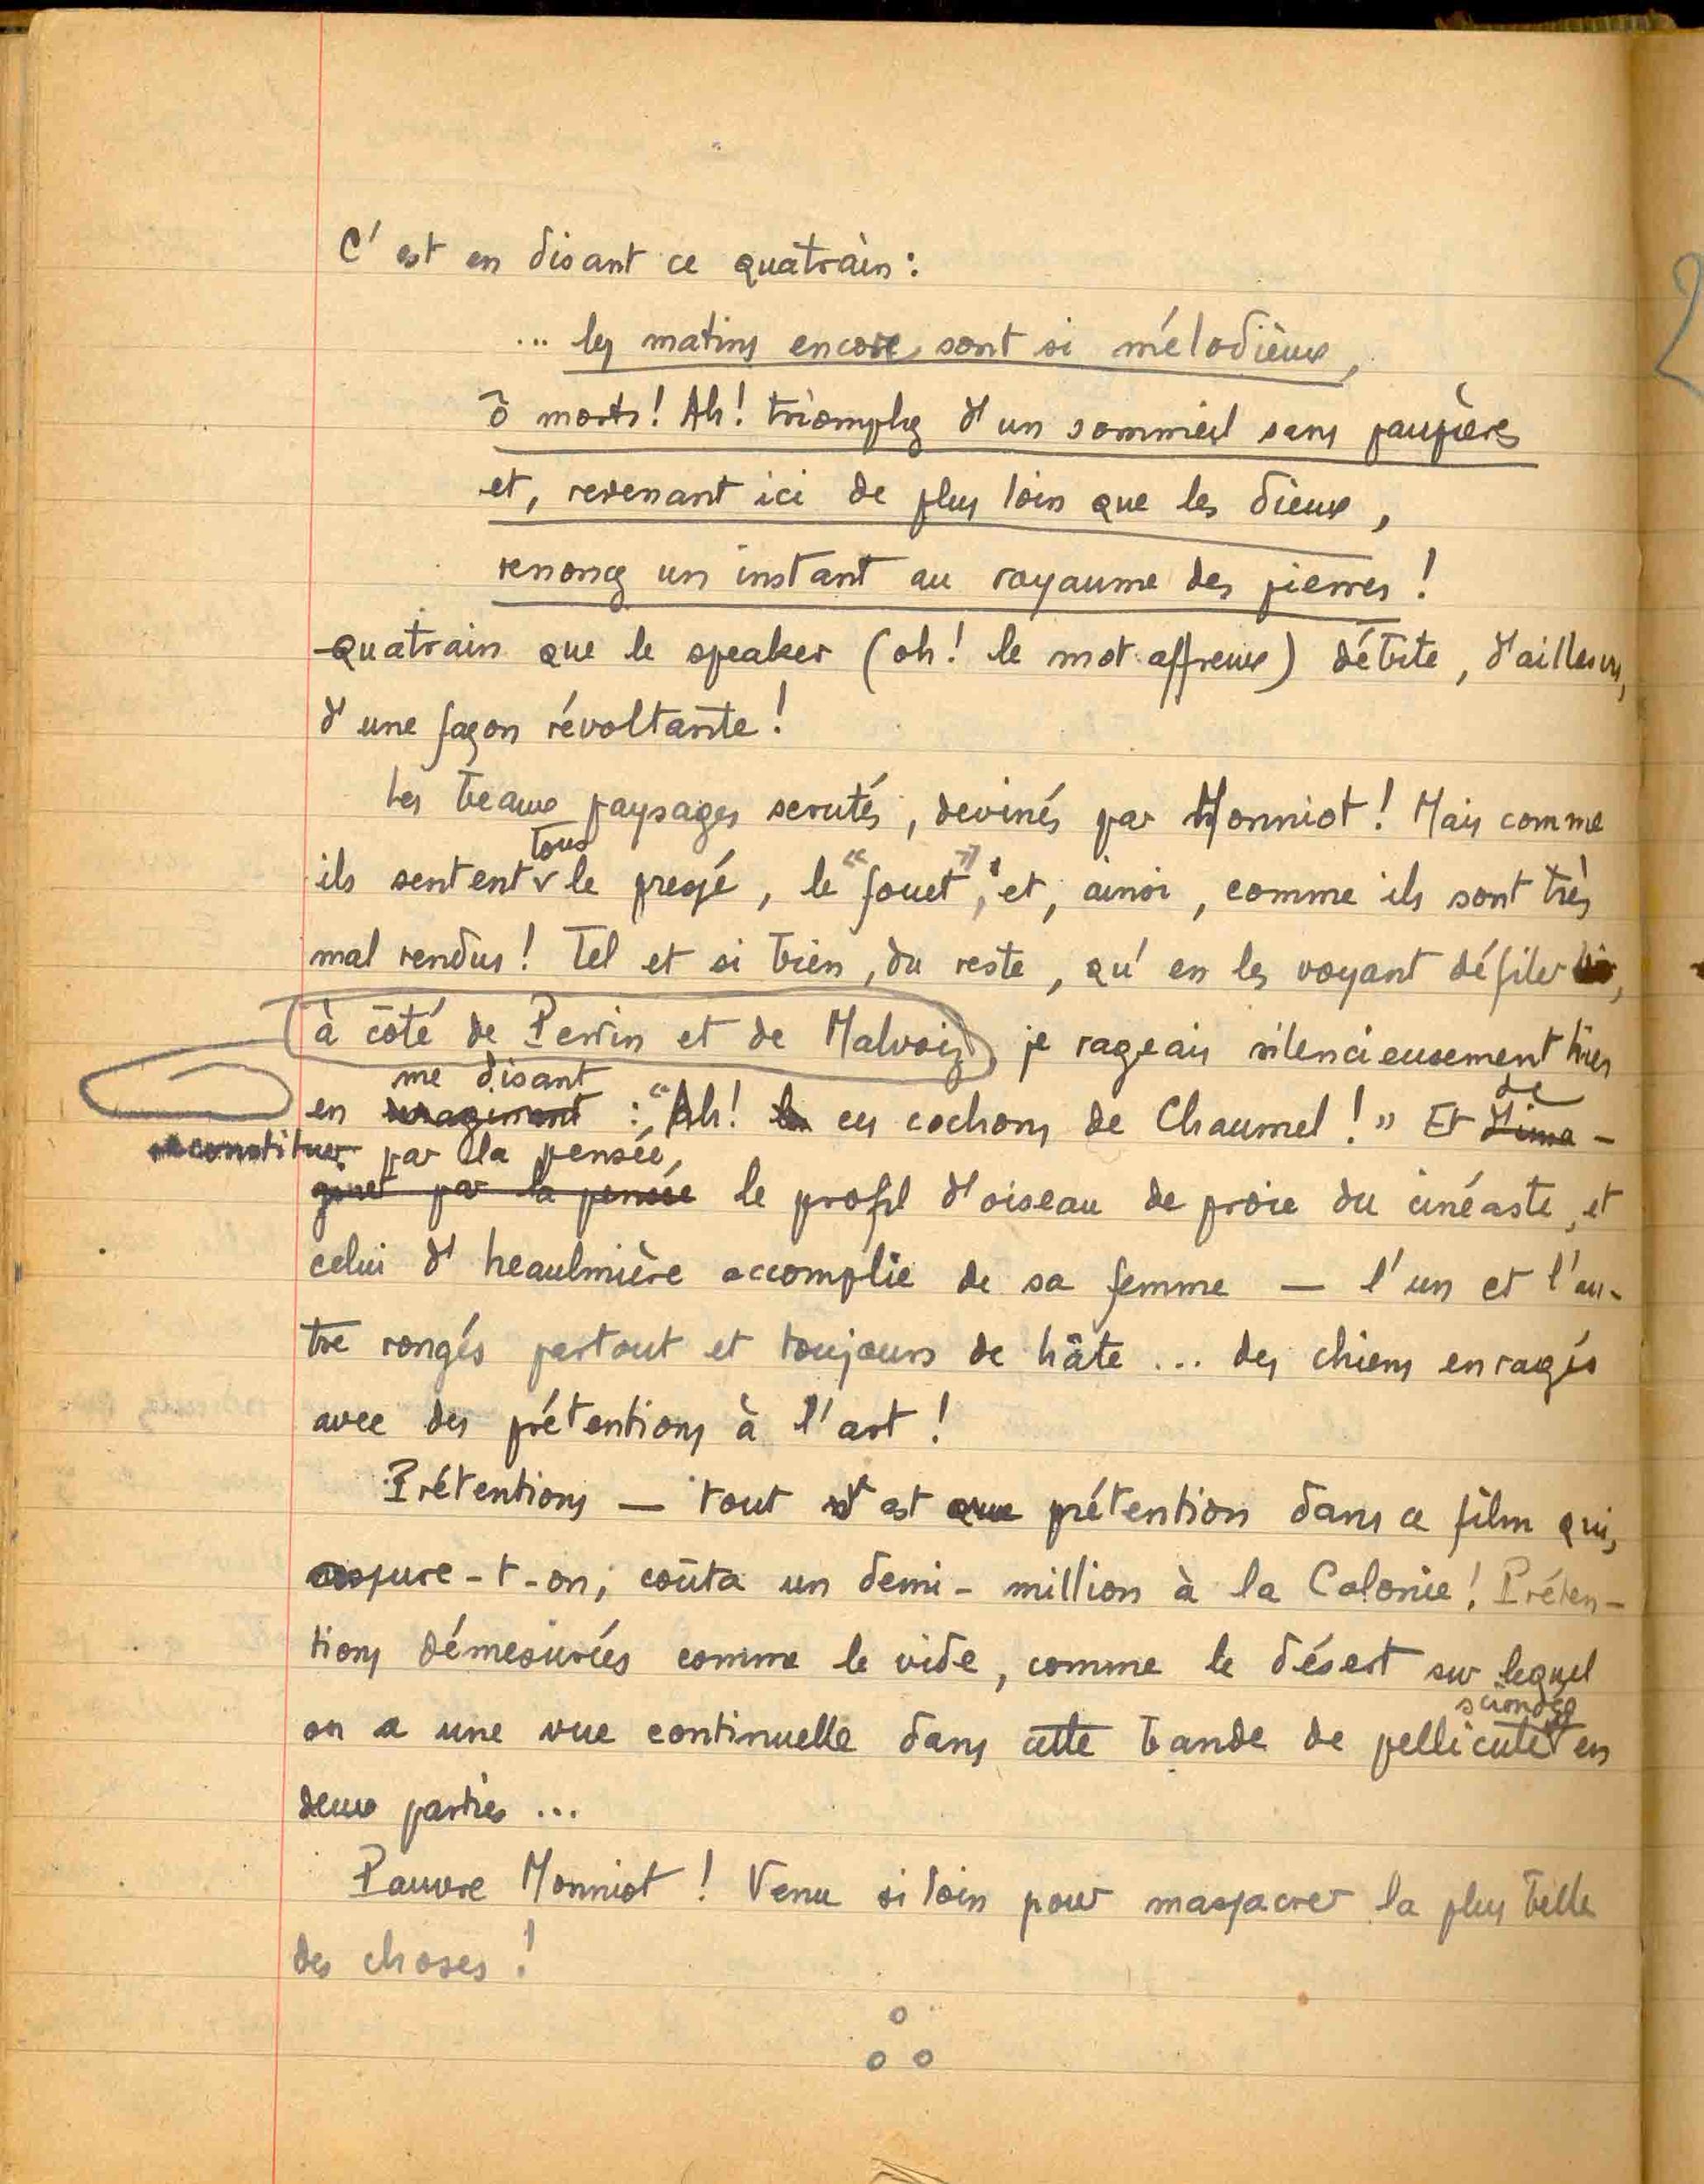 C'est en disant ce quatrain :
... les matins encore sont si mélodieux,
ô morts ! Ah ! triomphez d'un sommeil sans paupières
et, revenant ici de plus loin que les dieux,
renoncez un instant au royaume des pierres !
quatrain que le speaker (oh ! le mot affreux) débite, d'ailleurs,
d'une façon révoltante !
Les beaux paysages scrutés, devinés par Monniot ! Mais comme
tous
ils sentent le pressé, le "fouet", et, ainsi, comme ils sont très
mal rendus ! Tel et si bien, du reste, qu'en les voyant défiler
à côté de Perrin et de Malvoiz, je rageais silencieusement hier
me disant
en : "Ah ! ces cochons de Chaumel !" Et de
reconstituer par la pensée,
giner par la pensée le profil d'oiseau de proie du cinéaste, et
celui d'heaulmière accomplie de sa femme — l'un et l'au-
tre rongés partout et toujours de hâte ... des chiens enragés
avec des prétentions à l'art !
Prétentions — tout est prétention dans ce film qui,
assure-t-on, coûta un demi-million à la Colonie ! Préten-
tions démesurées comme le vide, comme le désert sur lequel
scindée
on a une vue continuelle dans cette bande de pellicule en
deux parties ...
Pauvre Monniot ! Venu si loin pour massacrer la plus belle
des choses !
2